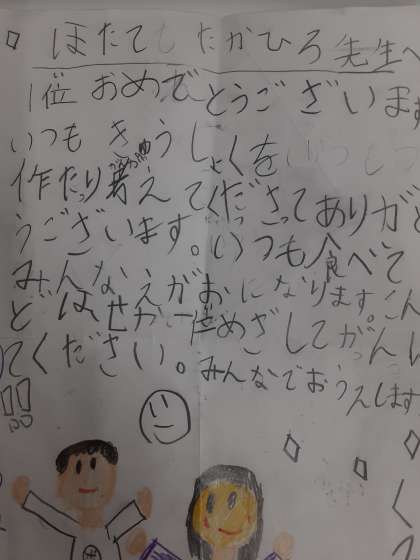 ほたてもたかひろ先生へ
1位おめでとうございます
いつもきゅうしょくをいつもつ
作たり考えてくださってありがと
うございます。いつも食べて
みんなえがおになります。こん
どは、せかい一位めざしてがん
てください。みんなでおうえんします
!!